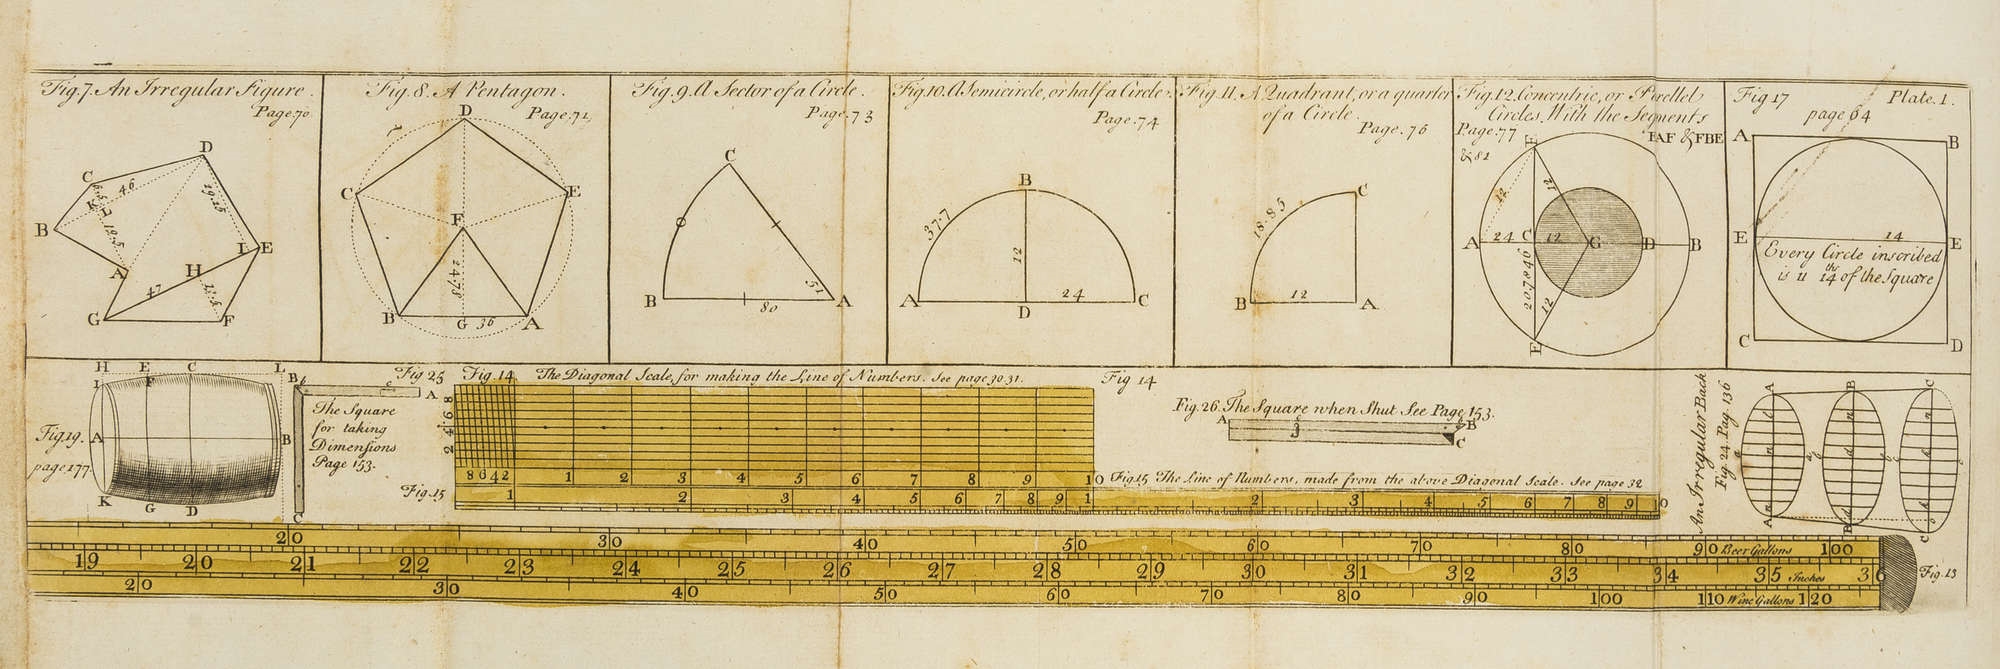 Fig. 7. An Irregular Figure.
Page. 70
D
C
46
K
L
12.5
19.15
B
A
I E
H
47
12.5
G
F
Fig. 8. A Pentagon.
Page. 71
D
C
E
F
24.78
B
G 36
A
Fig. 9. A Sector of a Circle.
Page. 73
C
51
B
80
A
Fig. 10. A Semicircle, or half a Circle.
Page. 74
B
37.7
12
24
A
D
C
Fig. 11. A Quadrant, or a quarter
of a Circle.
Page. 76
C
18.85
B
12
A
Fig. 12. Concentric, or Parellel
Circles, With the Segments
Page. 77
& 81
EAF & FBE
12
12
A
24
C
12
G
D
B
20.7846
12
E
Fig 17
Plate. 1.
page 64
A
B
E
14
E
Every Circle inscribed
is 11 14 ths of the Square
C
D
H E C L
I F
Fig. 19.
page 177.
A
B
K G D
Fig 25
B
A
The Square
for taking
Dimensions
Page 153.
C
Fig. 14
The Diagonal Scale, for making the Line of Numbers. See page 30 31.
Fig 14
8
6
4
2
8 6 4 2 1 2 3 4 5 6 7 8 9 10
Fig. 15
1 2 3 4 5 6 7 8 9 1
Fig. 15 The Line of Numbers, made from the above Diagonal Scale. See page 32
2 3 4 5 6 7 8 9 10
Fig. 26. The Square when Shut See Page 153.
A
B
C
An Irregular Back
Fig. 24. Pag. 136
A B C
20 30 40 50 60 70 80 90 Beer Gallons 100
19 20 21 22 23 24 25 26 27 28 29 30 31 32 33 34 35 Inches 36
20 30 40 50 60 70 80 90 100 110 Wine Gallons 120
Fig. 13